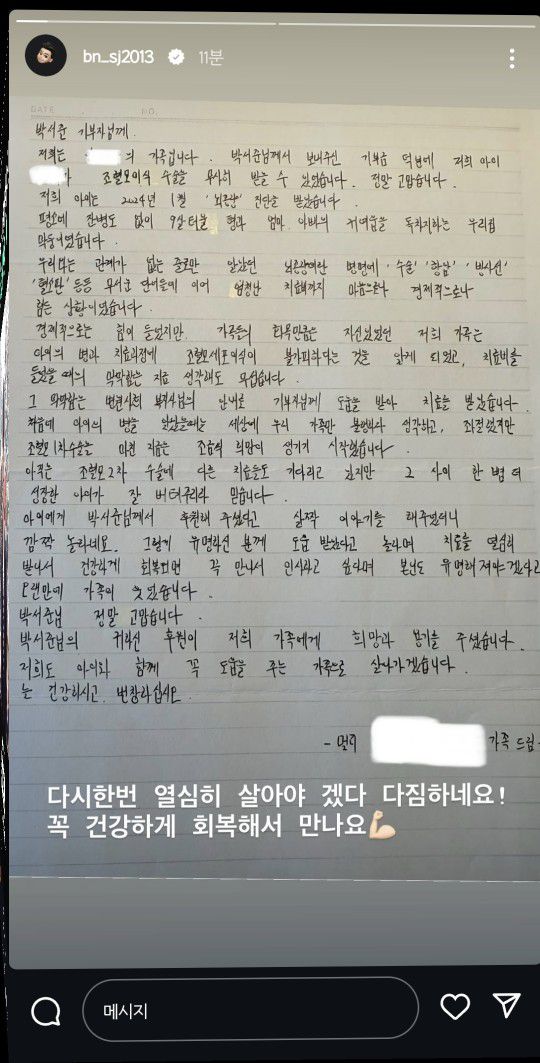 bn_sj2013 11분
DATE . . NO.
박서준 기부자님께.
저희는 의 가족입니다. 박서준님께서 보내주신 기부금 덕분에 저희 아이
가 조혈모이식 수술을 무사히 받을 수 있었습니다. 정말 고맙습니다.
저희 아이는 2024년 1월 '뇌종양' 진단을 받았습니다
평소에 잔병도 없이 9살 터울 형과 엄마 아빠의 귀여움을 독차지하는 우리집
막둥이였습니다.
우리와는 관계가 없는 줄로만 알았던 뇌종양이란 병명에 '수술' '항암' '방사선'
'혈소판' 등등 무서운 단어들에 이어 엄청난 치료비까지 마음으로나 경제적으로나
힘든 상황이었습니다.
경제적으로는 힘이 들었지만, 가족들의 화목만큼은 자신있었던 저희 가족은
아이의 병과 치료과정에 조혈모세포이식이 불가피하다는 것을 알게 되었고, 치료비를
들었을 때의 막막함은 지금 생각해도 무섭습니다.
그 막막함은 병원사회 복지사님의 안내로 기부자님께 도움을 받아 치료를 받았습니다.
처음에 아이의 병을 알았을때는 세상에 우리 가족만 불행하다 생각하고, 좌절했지만
조혈모 1차수술을 마친 지금은 조금씩 희망이 생기기 시작했습니다.
아직은 조혈모 2차 수술에 다른 치료들도 기다리고 있지만 그 사이 한 뼘 더
성장한 아이가 잘 버텨주리라 믿습니다.
아이에게 박서준님께서 후원해 주셨다고 살짝 이야기를 해주었더니
깜짝 놀라네요. 그렇게 유명하신 분께 도움 받았다고 놀라며 치료를 열심히
받아서 건강하게 회복되면 꼭 만나서 인사하고 싶다며 본인도 유명해져야겠다고
오랜만에 가족이 웃었습니다.
박서준님 정말 고맙습니다.
박서준님의 귀하신 후원이 저희 가족에게 희망과 용기를 주셨습니다.
저희도 아이와 함께 꼭 도움을 주는 가족으로 살아가겠습니다.
늘 건강하시고 번창하십시오.
- 멀리 가족 드림 -
다시한번 열심히 살아야 겠다 다짐하네요!
꼭 건강하게 회복해서 만나요💪🏻
메시지